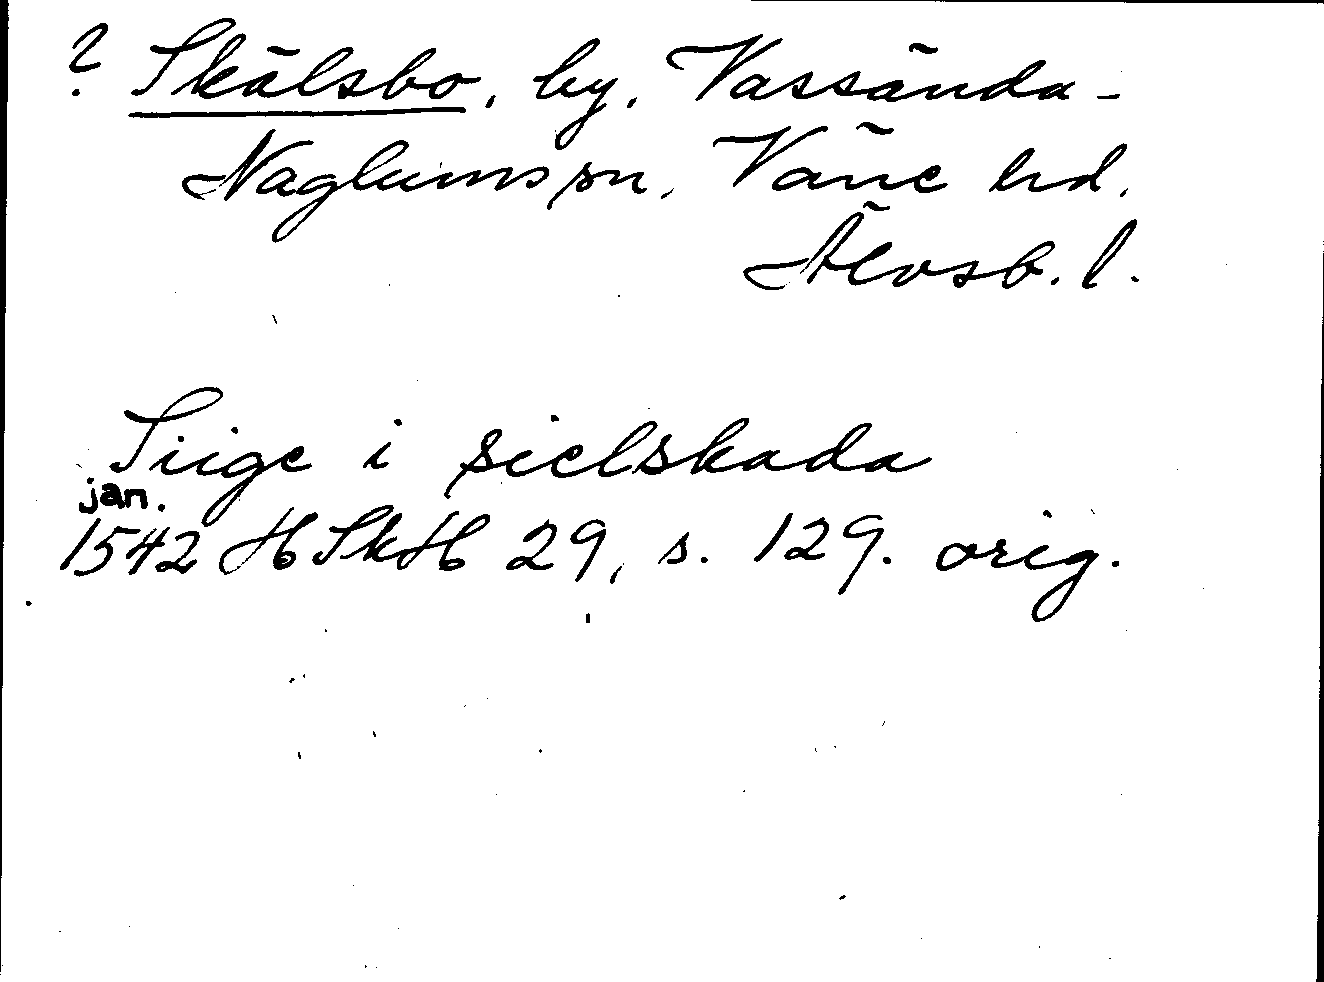 ? Skälsbo, by, Vassända-
Naglums sn. Väne hd.
Älvsb. l.
Siige i sielskada
jan.
1542 HSkH 29, s. 129. orig.